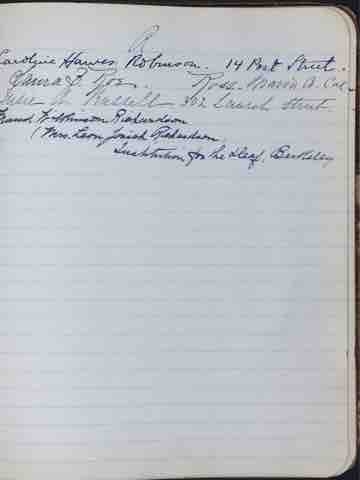 R
Caroline Hawes Robinson. 14 Post Street.
Laura E. Ross. Ross. Marin Co. Cal.
Russell 302 Laurel Street.
Maud Wilkinson Richardson
(Mrs. Leon Josiah Richardson.
Institution for the Deaf, Berkeley